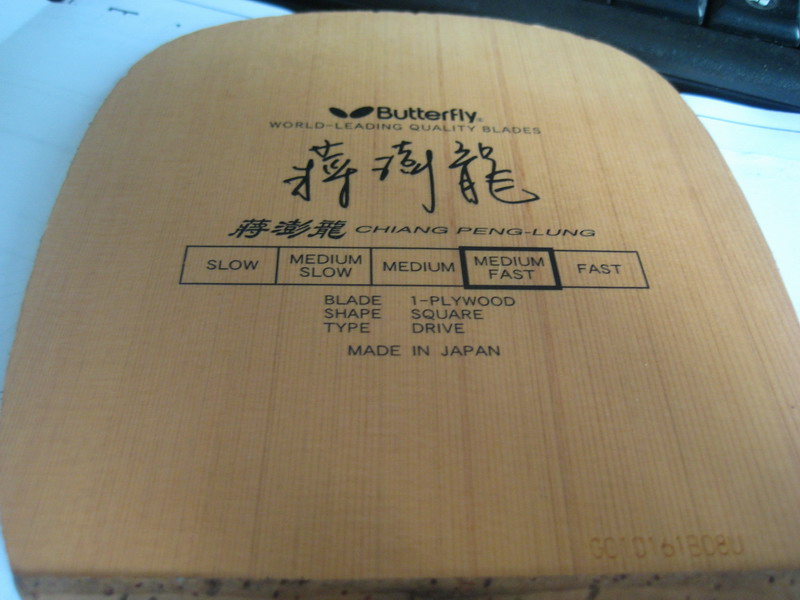 Butterfly®
WORLD-LEADING QUALITY BLADES
蔣澎龍
蔣澎龍 CHIANG PENG-LUNG
SLOW MEDIUM SLOW MEDIUM MEDIUM FAST FAST
BLADE 1-PLYWOOD
SHAPE SQUARE
TYPE DRIVE
MADE IN JAPAN